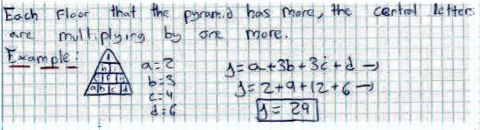 Each Floor that the pyramid has more, the central letters
are multiplying by one more.
Example:
a=2
b=3
c=4
d=6
y=a+3b+3c+d →
y=2+9+12+6 →
y=29
a b c d